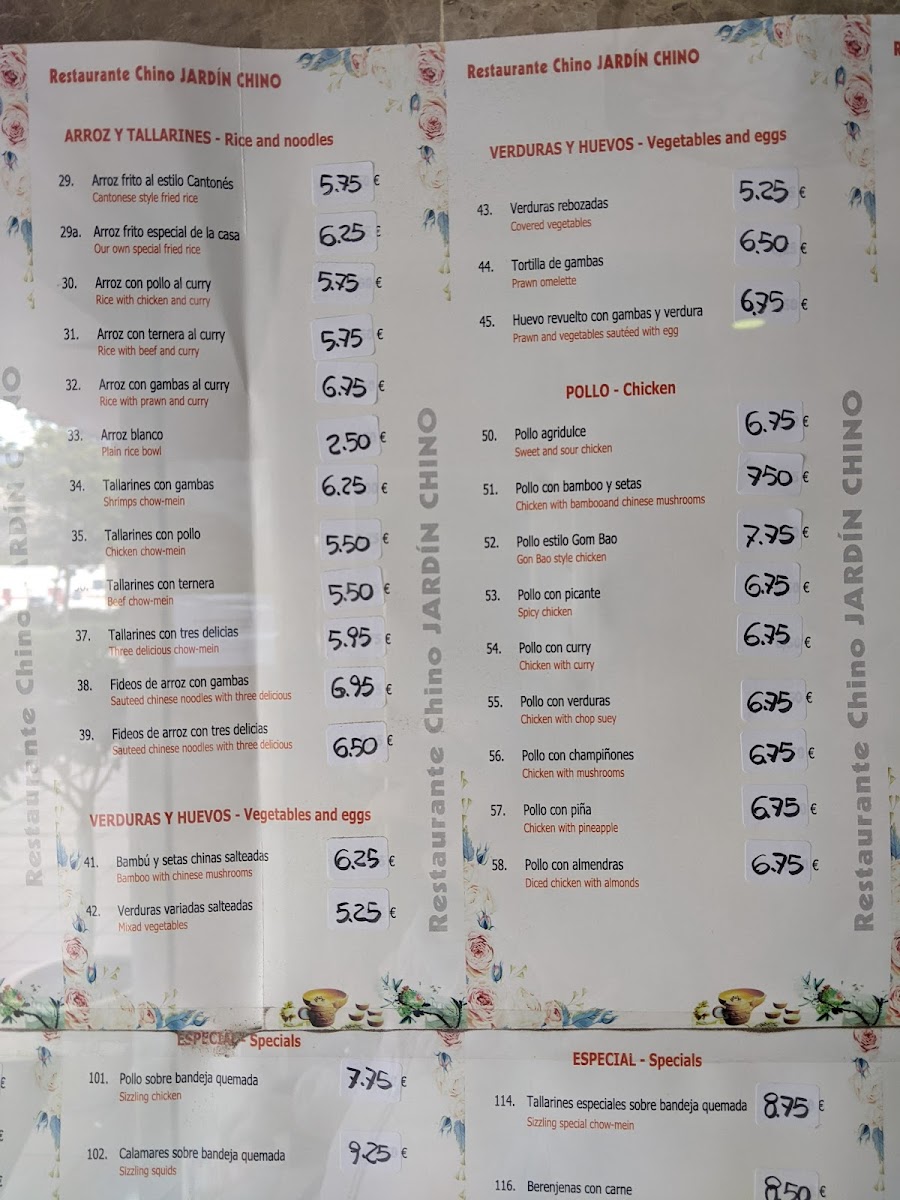 Restaurante Chino JARDÍN CHINO
ARROZ Y TALLARINES - Rice and noodles
29. Arroz frito al estilo Cantonés 5.75 €
Cantonese style fried rice
29a. Arroz frito especial de la casa 6.25 €
Our own special fried rice
30. Arroz con pollo al curry 5.75 €
Rice with chicken and curry
31. Arroz con ternera al curry 5.75 €
Rice with beef and curry
32. Arroz con gambas al curry 6.75 €
Rice with prawn and curry
33. Arroz blanco 2.50 €
Plain rice bowl
34. Tallarines con gambas 6.25 €
Shrimps chow-mein
35. Tallarines con pollo 5.50 €
Chicken chow-mein
Tallarines con ternera 5.50 €
Beef chow-mein
37. Tallarines con tres delicias 5.95 €
Three delicious chow-mein
38. Fideos de arroz con gambas 6.95 €
Sauteed chinese noodles with three delicious
39. Fideos de arroz con tres delicias 6.50 €
Sauteed chinese noodles with three delicious
VERDURAS Y HUEVOS - Vegetables and eggs
41. Bambú y setas chinas salteadas 6.25 €
Bamboo with chinese mushrooms
42. Verduras variadas salteadas 5.25 €
Mixad vegetables
Restaurante Chino JARDÍN CHINO
Restaurante Chino JARDÍN CHINO
Restaurante Chino JARDÍN CHINO
VERDURAS Y HUEVOS - Vegetables and eggs
43. Verduras rebozadas 5.25 €
Covered vegetables
44. Tortilla de gambas 6.50 €
Prawn omelette
45. Huevo revuelto con gambas y verdura 6.75 €
Prawn and vegetables sautéed with egg
POLLO - Chicken
50. Pollo agridulce 6.75 €
Sweet and sour chicken
51. Pollo con bamboo y setas 7.50 €
Chicken with bambooand chinese mushrooms
52. Pollo estilo Gom Bao 7.75 €
Gon Bao style chicken
53. Pollo con picante 6.75 €
Spicy chicken
54. Pollo con curry 6.75 €
Chicken with curry
55. Pollo con verduras 6.75 €
Chicken with chop suey
56. Pollo con champiñones 6.75 €
Chicken with mushrooms
57. Pollo con piña 6.75 €
Chicken with pineapple
58. Pollo con almendras 6.75 €
Diced chicken with almonds
Restaurante Chino JARDÍN CHINO
ESPECIAL - Specials
101. Pollo sobre bandeja quemada 7.75 €
Sizzling chicken
102. Calamares sobre bandeja quemada 9.25 €
Sizzling squids
ESPECIAL - Specials
114. Tallarines especiales sobre bandeja quemada 8.75 €
Sizzling special chow-mein
116. Berenjenas con carne 8.50 €